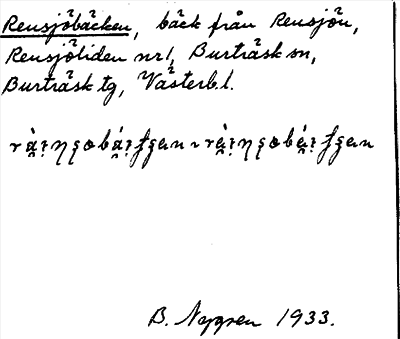 Rensjöbäcken, bäck från Rensjön,
Rensjöliden nr1, Burträsk sn,
Burträsk tg, Västerb. l.
B. Nygren 1933.